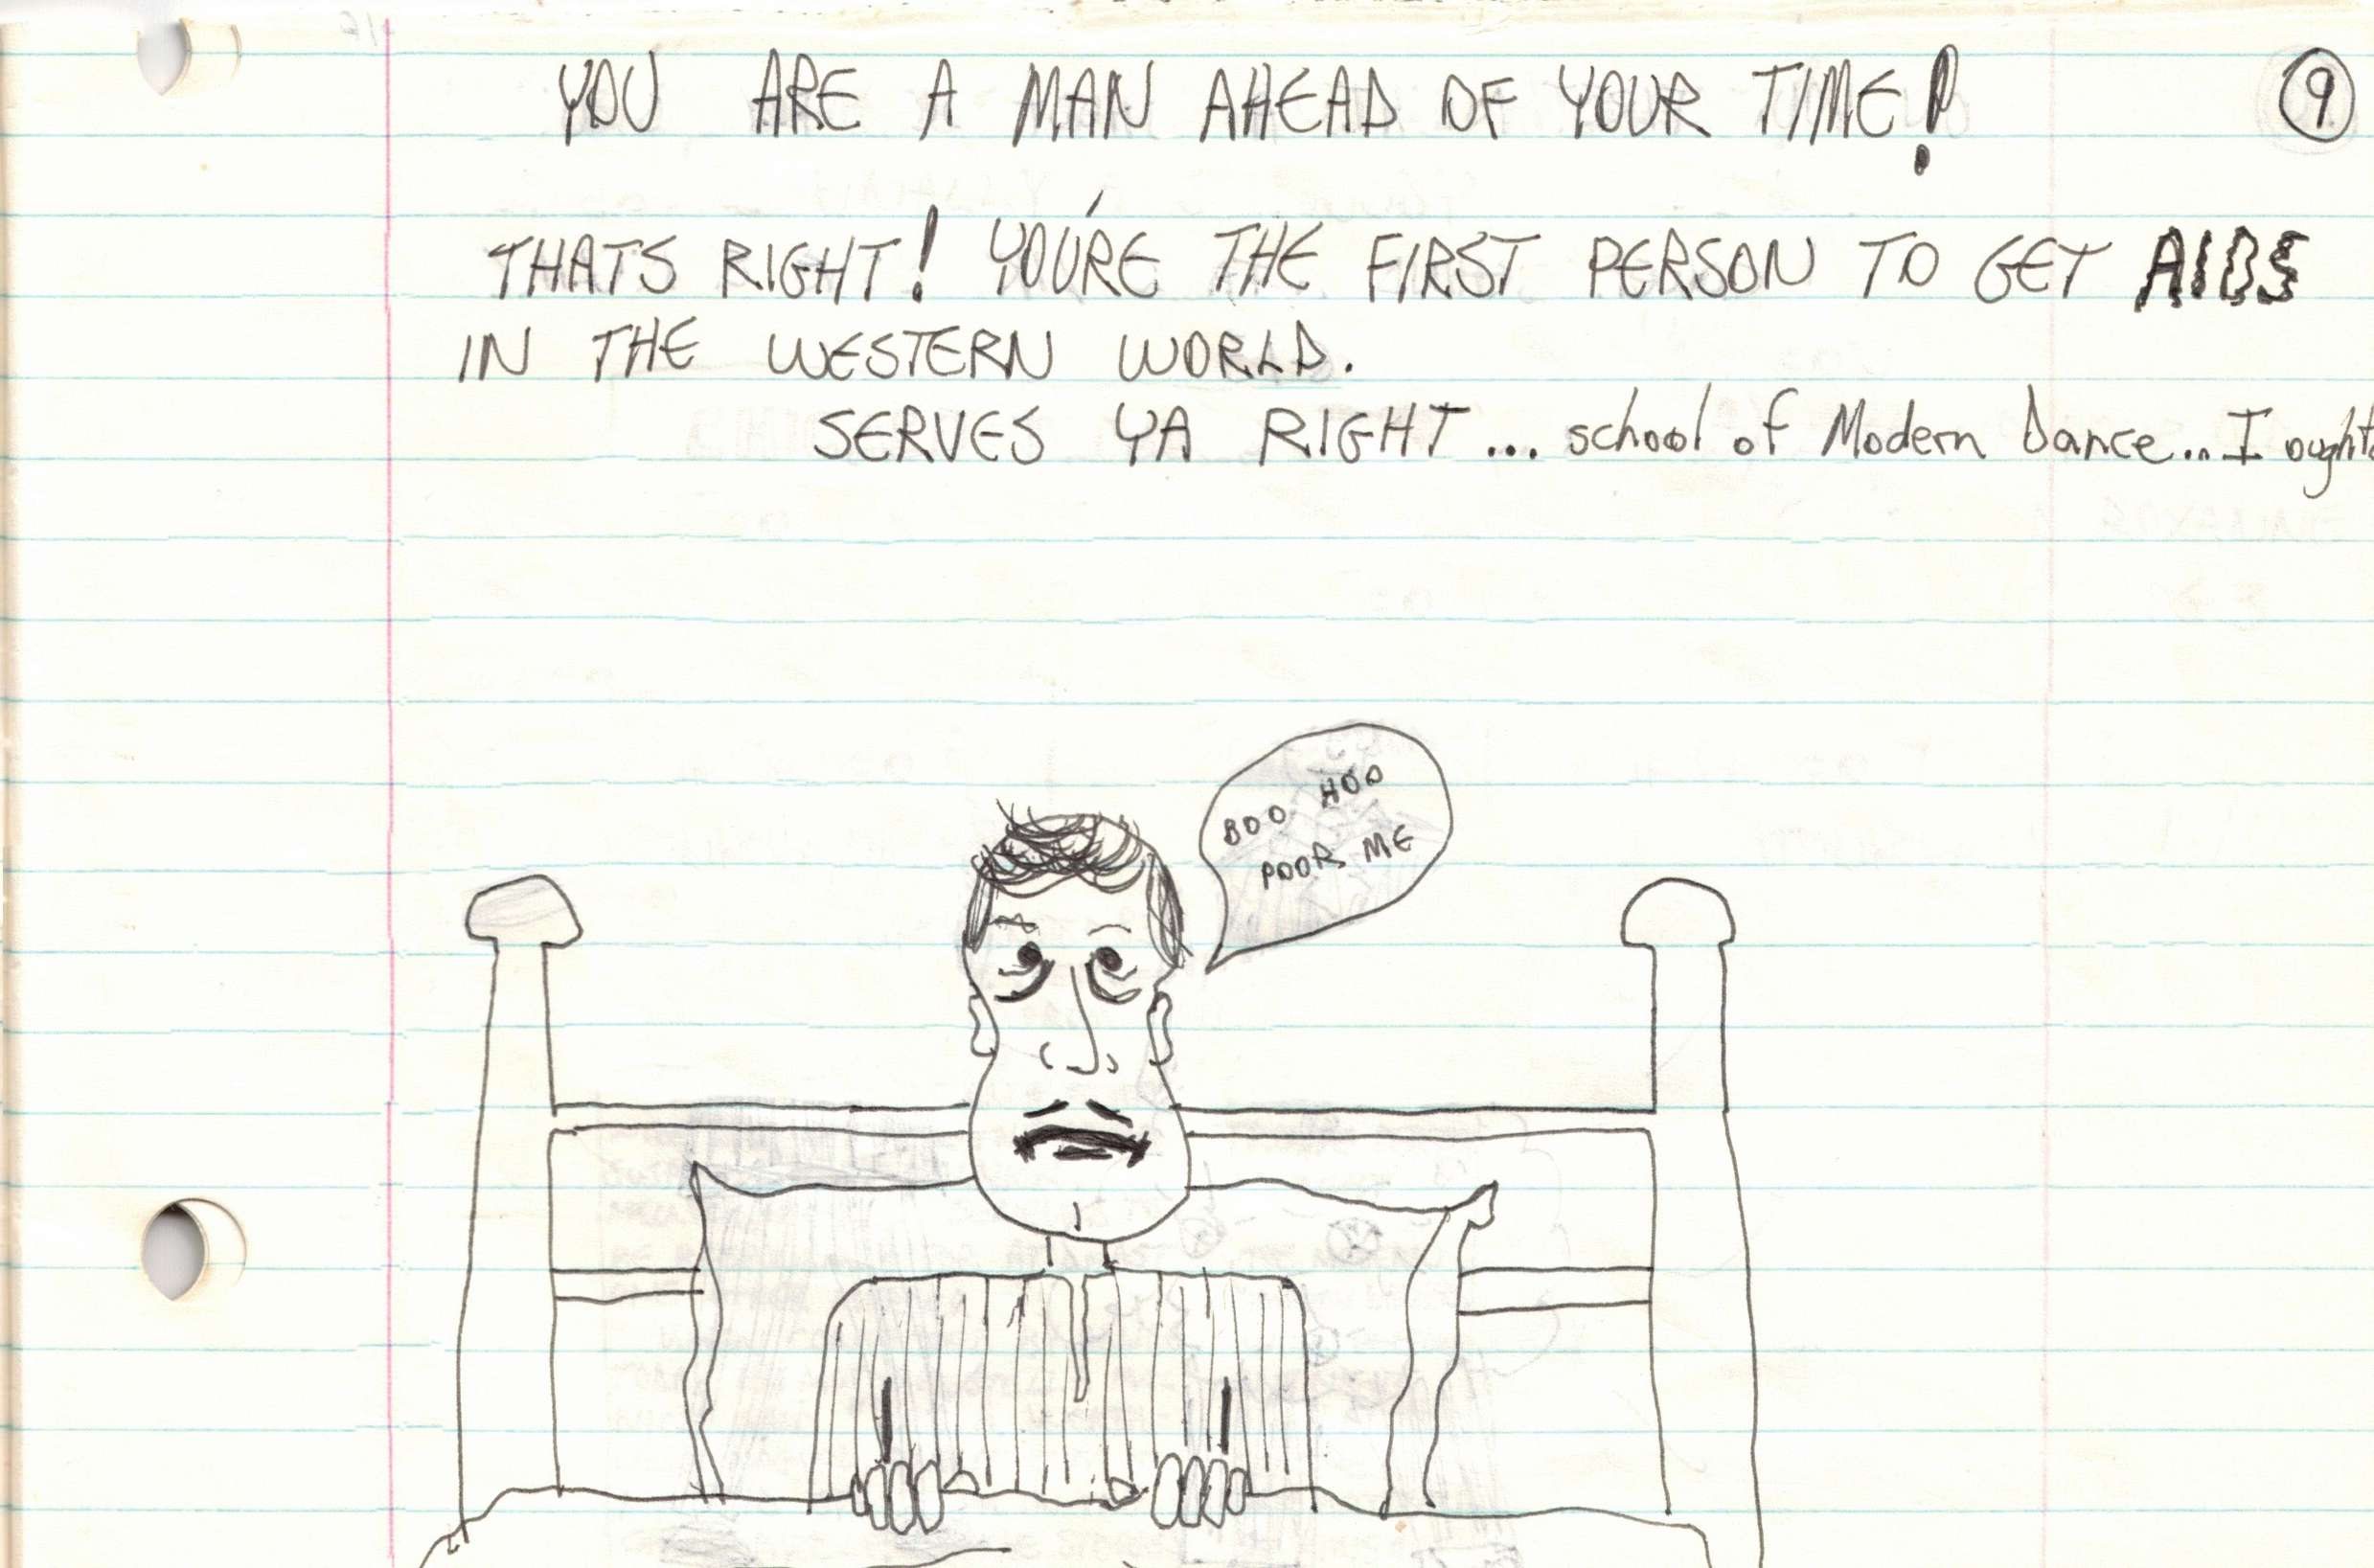 YOU ARE A MAN AHEAD OF YOUR TIME!
9
THATS RIGHT! YOU'RE THE FIRST PERSON TO GET AIDS
IN THE WESTERN WORLD.
SERVES YA RIGHT... school of Modern Dance... I oughta
BOO HOO
POOR ME